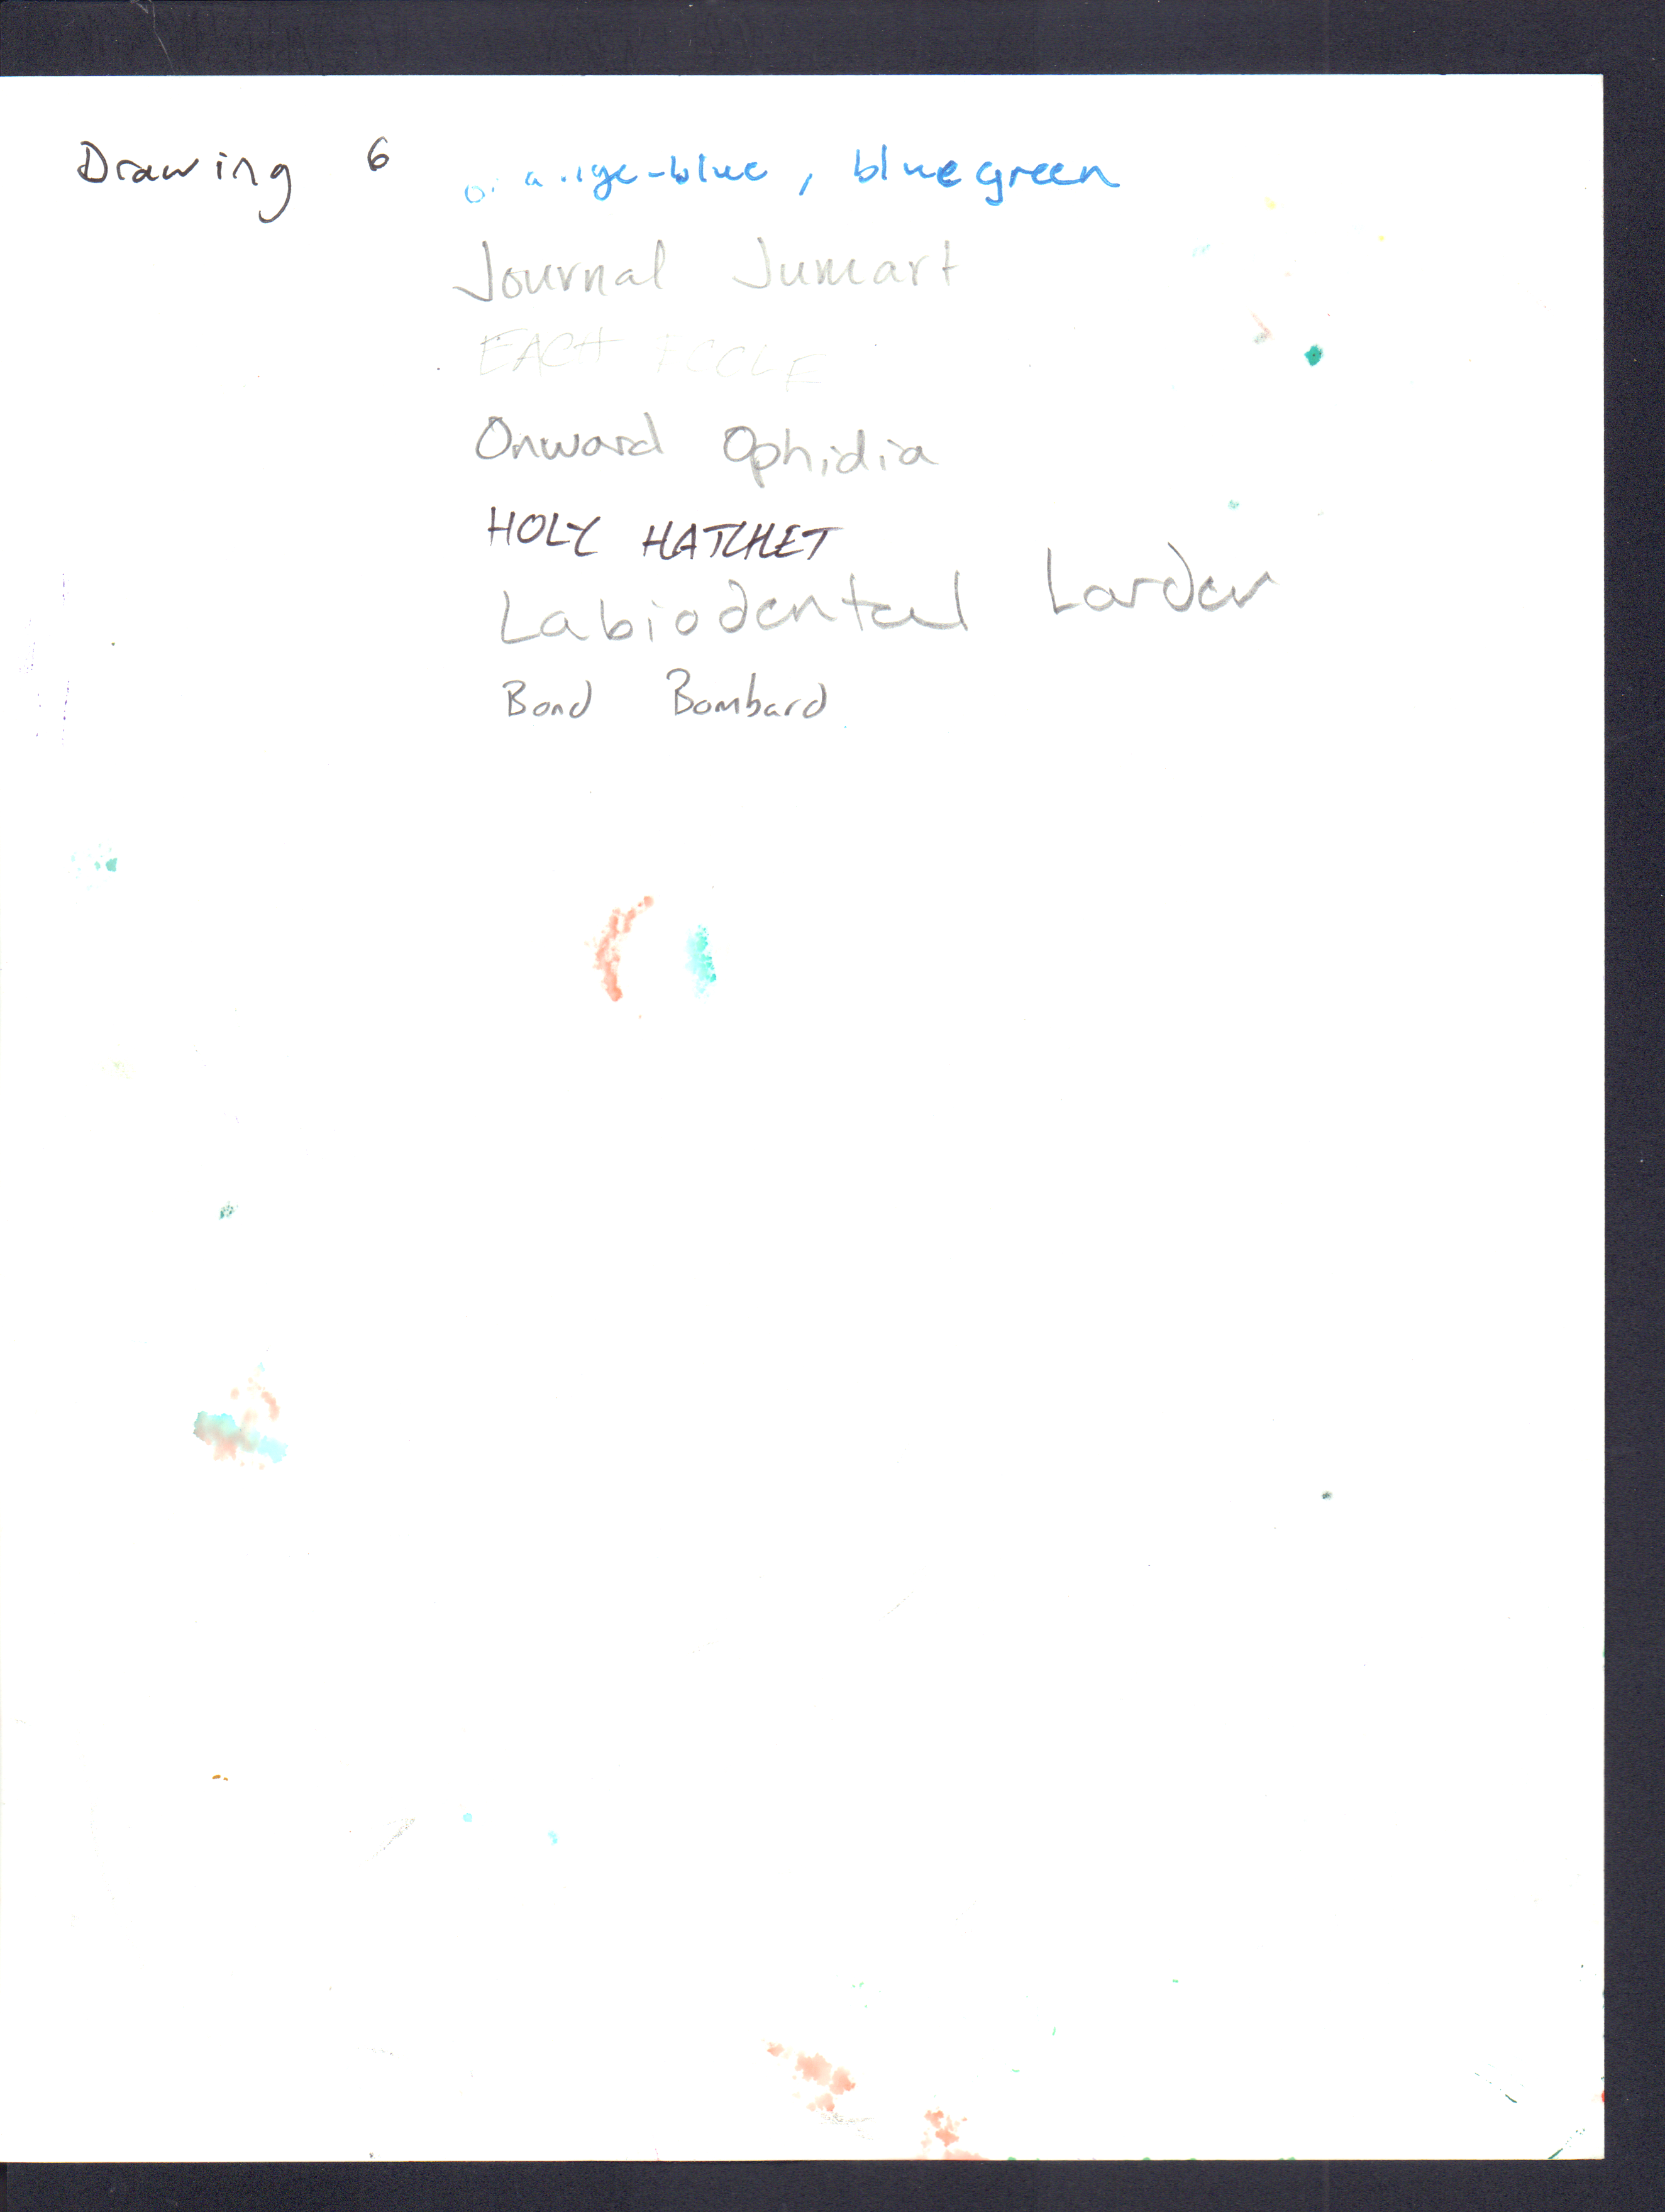 Drawing 6 orange-blue, bluegreen
Journal Jumart
EACH ECCLE
Onward Ophidia
HOLY HATCHET
Labiodental Larder
Bond Bombard